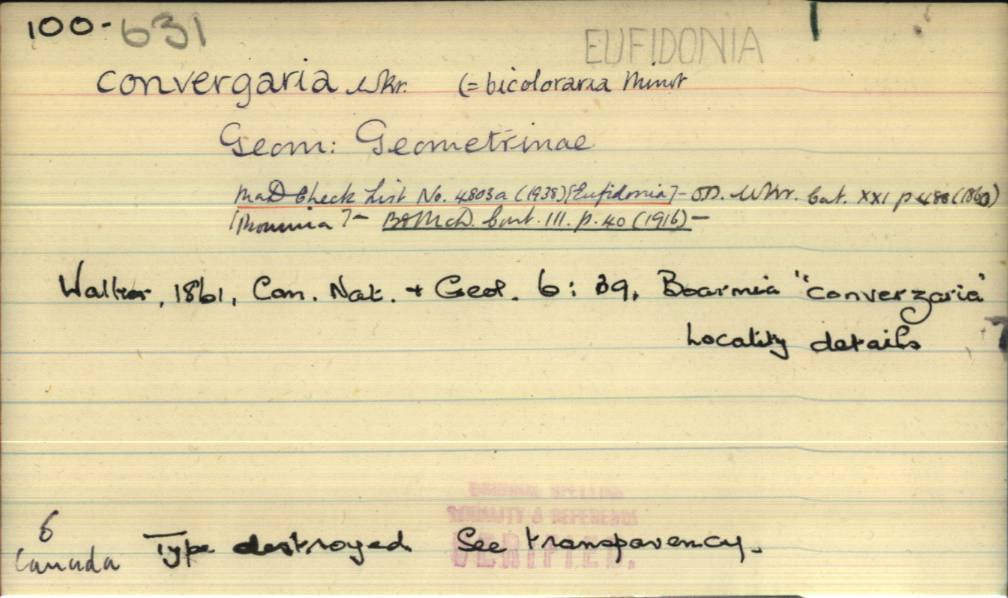 100-631
EUFIDONIA
convergaria Wkr. (= bicoloraria Minot
Geom: Geometrinae
McD Check List No. 4803a (1938) [Eufidonia] - O.D. Wkr. Cat. XXI p 488 (1860)
B&McD. Cont. III. p. 40 (1916) -
Walker, 1861, Can. Nat. + Geol. 6: 39, Boarmia "converzaria"
Locality details
ORIGINAL SPELLING
LOCALITY & REFERENCE
VERIFIED.
6
Canada
Type destroyed See transparency.